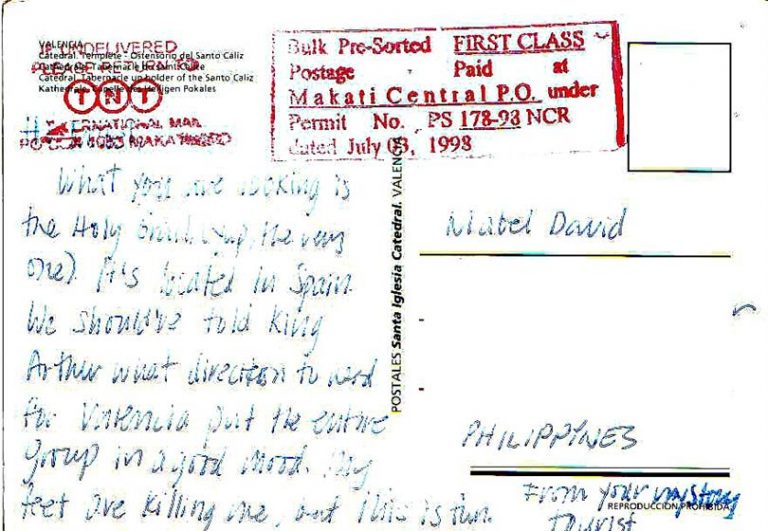 VALENCIA
Catedral. Templete - Ostensorio del Santo Cáliz
Cathédrale. Tabernacle du Saint Calice
Cathedral. Tabernacle up holder of the Santo Caliz
Kathedrale. Kapelle des Heiligen Pokales
IF UNDELIVERED
PLEASE RETURN TO
TNT
INTERNATIONAL MAIL
MAKATI
Bulk Pre-Sorted FIRST CLASS
Postage Paid at
Makati Central P.O. under
Permit No. PS 178-93 NCR
dated July 03, 1993
What you are looking is
the Holy Grail (yup, the very
one). It's located in Spain.
We should've told King
Arthur what direction to head
for. Valencia put the entire
group in a good mood. My
feet are killing me, but this is fun.
POSTALES Santa Iglesia Catedral. VALENCIA
Mabel David
PHILIPPINES
From your
tourist
REPRODUCCION PROHIBIDA